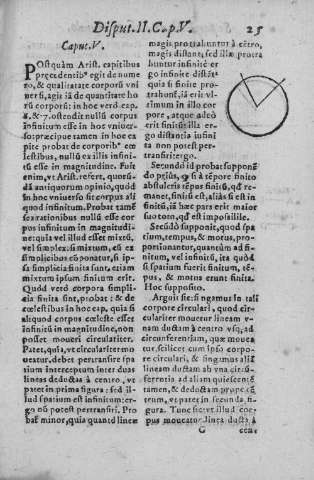 Disput. II. Cap. V. 25
Caput. V.
POstquàm Arist. capitibus
præcedentib⁹ egit de nume
ro, & qualitate corporũ vni
uersi, agit iã de quantitate ho
rũ corporũ: in hoc verò cap.
& 7. ostendit nullũ corpus
infinitum esse in hoc vniuer
so: præcipuè tamen in hoc ca
pite probat de corporib⁹ cœ
lestibus, nullũ ex illis infini
tũ esse in magnitudine. Fuit
enim, vt Arist. refert, quorũ
dã antiquorum opinio, quòd
in hoc vniuerso sit corpus ali
quod infinitum. Probat tamẽ
nullũ esse cor
pus infinitum in magnitudi
ne: quia vel illud esset mixtũ,
vel simplex: si mixtum, cũ ex
simplicibus cõponatur, si ip
sa simplicia finita sunt, etiam
mixtum ipsum finitum erit.
Quòd verò corpora simpli
cia finita sint, probat: & de
cœlestibus in hoc cap. quia si
aliquod corpus cœleste esset
infinitũ in magnitudine, non
posset moueri circulariter.
Patet, quia, vt circulariter mo
ueatur, debet pertransire spa
tium interceptum inter duas
lineas deductas à centro, vt
patet in prima figura: sed il-
lud spatium est infinitum: er-
go nõ potest pertransiri. Pro
bat minor, quia quantò lineæ
magis protrahuntur à cẽtro,
magis distant, sed illæ protra
huntur infinitè: er
go infinitè distãt:
quia si finitè pro
trahunt,
timum in illo cor
pore, atque adeò
erit finitũ: illa er-
go distantia infini
ta non potest per-
transiri: ergo.
Secundò id probat supponẽ
do priùs, quod si à tẽpore finito
abstuleris tẽpus finitũ, quod re
manet, finitũ est, aliàs si est in
finitũ, iã hæc pars erit maior
suo toto, quod est impossibile.
Secũdò supponit, quòd spa
tium, tempus, & motus, pro-
portionantur, quantùm ad fi-
nitum, vel infinitũ, ita quòd
si spatium fuerit finitum, tẽ-
pus, & motus erunt finita.
Hoc supposito.
Arguit sic: fingamus in tali
corpore circulari, quod circu
lariter mouetur lineam v-
nam ductam à centro vsq; ad
circunferentiam, quæ moue
tur, scilicet cum ipso corpo-
re circulari, & fingamus aliã
lineam ductam ab vna circũ-
ferentia ad aliam quiescentẽ
tamen, & deductam prope cẽ
trum, vt patet in secunda fi-
gura. Tunc sic: vt illud cor-
pus moueatur linea ducta à
C cen-